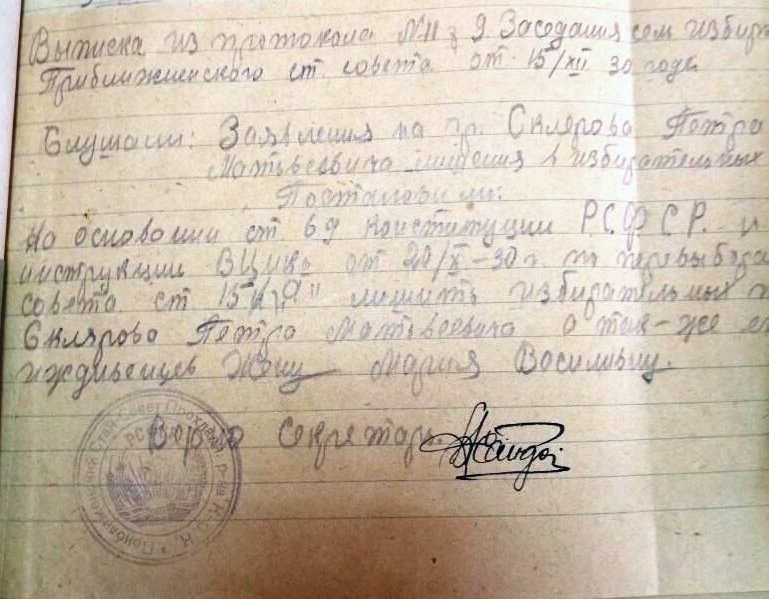 Выписка из протокола № 11 з 9 Заседания сем избир
Приближненского ст. совета от 15/XII 30 года
Слушали: Заявления на гр. Склярова Петра
Матвеевича лишения в избирательных
Постановили:
На основании ст. 69 конституции Р.С.Ф.С.Р. и
инструкции ВЦИКа от 20/X–30 г. по перевыбора
совета ст 15 лишить избирательных п
Склярова Петра Матвеевича а так-же ег
иждивенцев Жену Мария Василивну.
Верно Секретарь